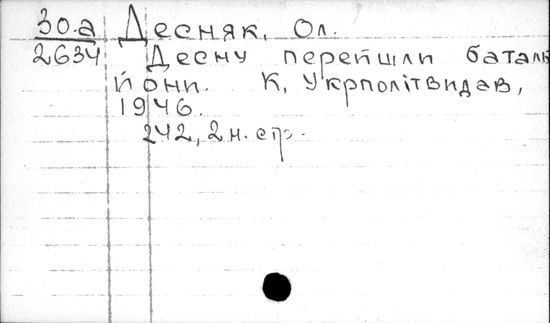 30.а Десняк, Ол.
2634 Десну перейшли баталь
йони. К, Укрполітвидав,
1946.
242, 2 н. стр.